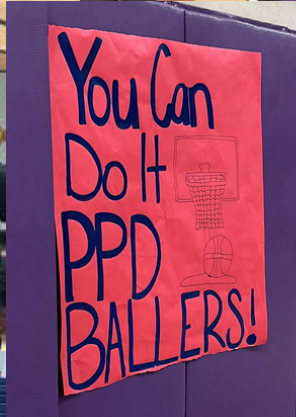 You Can
Do It
PPD
BALLERS!